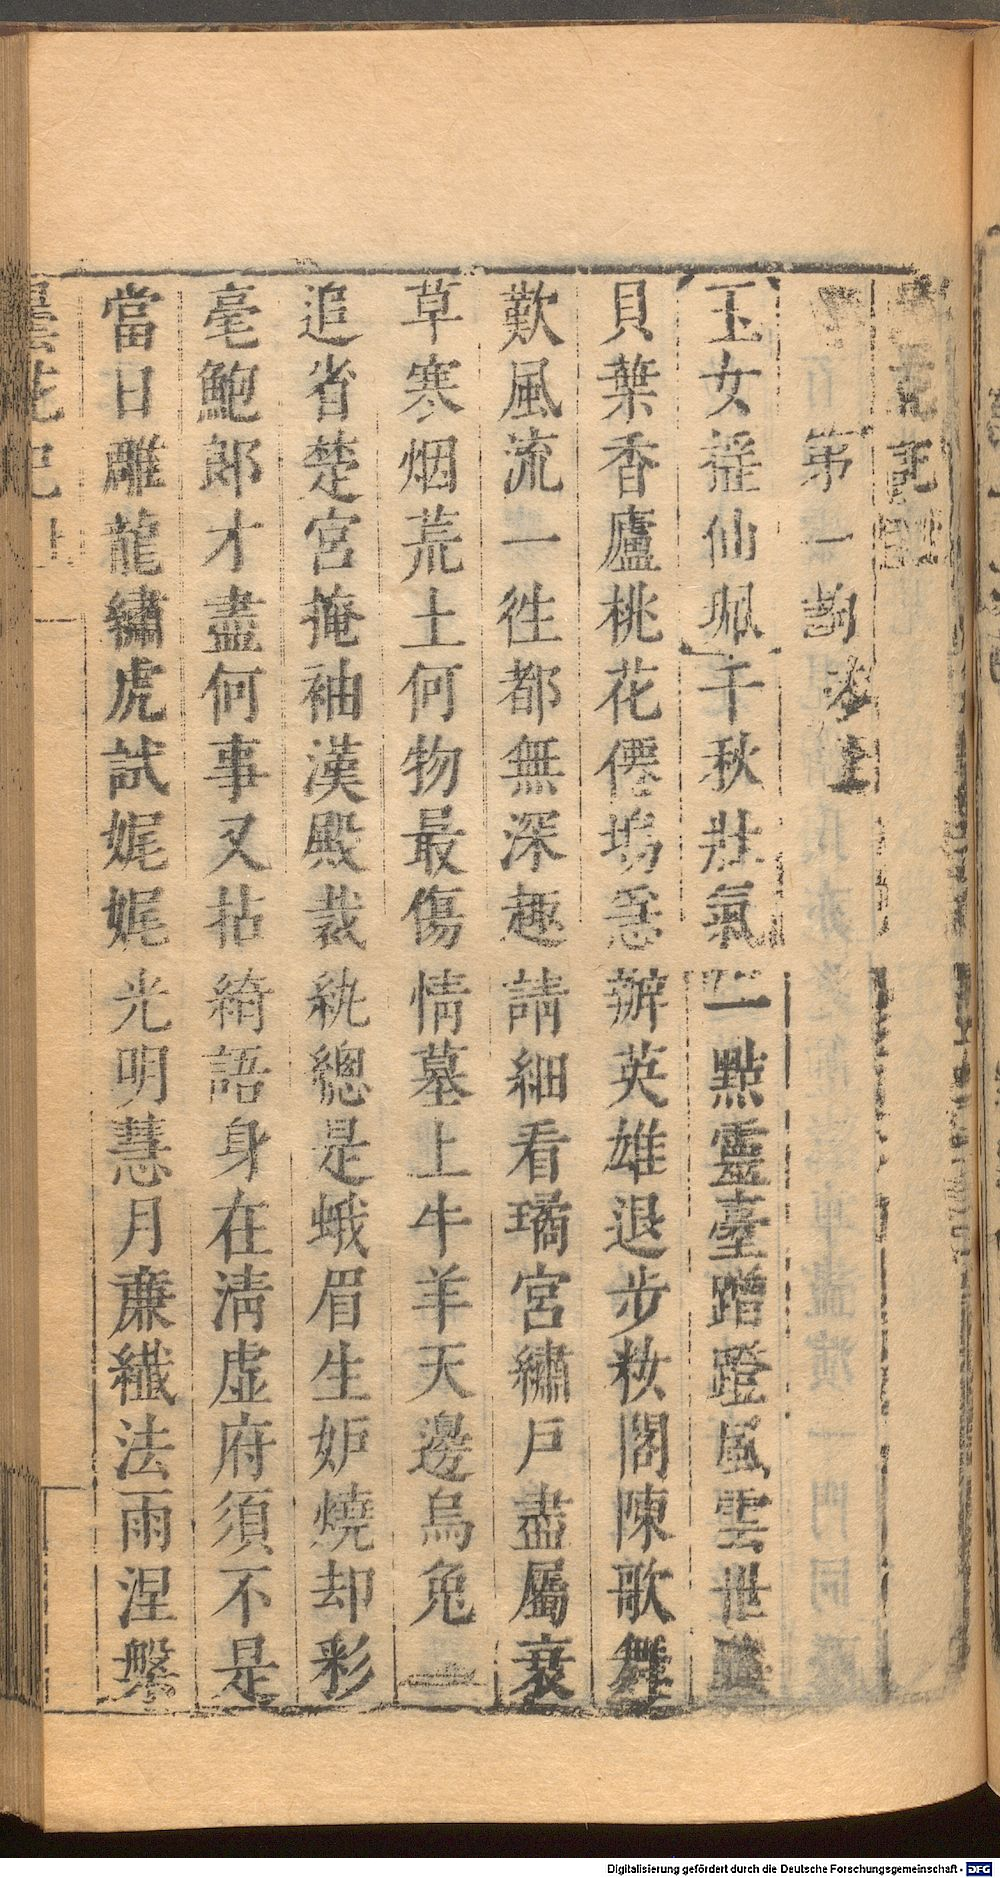 曇花記
第一齣
玉女從仙珮千秋壯氣一點靈臺蹭蹬風雲世
貝葉香廬桃花僊塢急辦英雄退步妝閣陳歌舞
歎風流一徃都無深趣請細看璚宮繡戸盡屬衰
草寒烟荒土何物最傷情墓上牛羊天邊烏兔一
追省楚宮掩袖漢殿裁紈總是蛾眉生妒燒却彩
毫鮑郎才盡何事又拈綺語身在清虛府須不是
當日雕龍繡虎試娓娓光明慧月亷纖法雨涅槃
曇花記
Digitalisierung gefördert durch die Deutsche Forschungsgemeinschaft - DFG